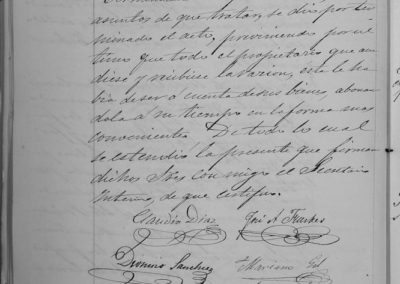 asuntos de que tratar, se dió por ter
minado el acto, previniendo por úl
timo que todo el propietario que acu
diese y recibiese la racion, ésta le ha
bia de ser á cuenta de sus bienes, abonan
dola á su tiempo en la forma mas
conveniente. De todo lo cual
se estendió la presente que firman
dichos Sres conmigo el Secretario
Interino, de que certifico.
Claudio Diaz José A
Dionisio Sanchez Mariano